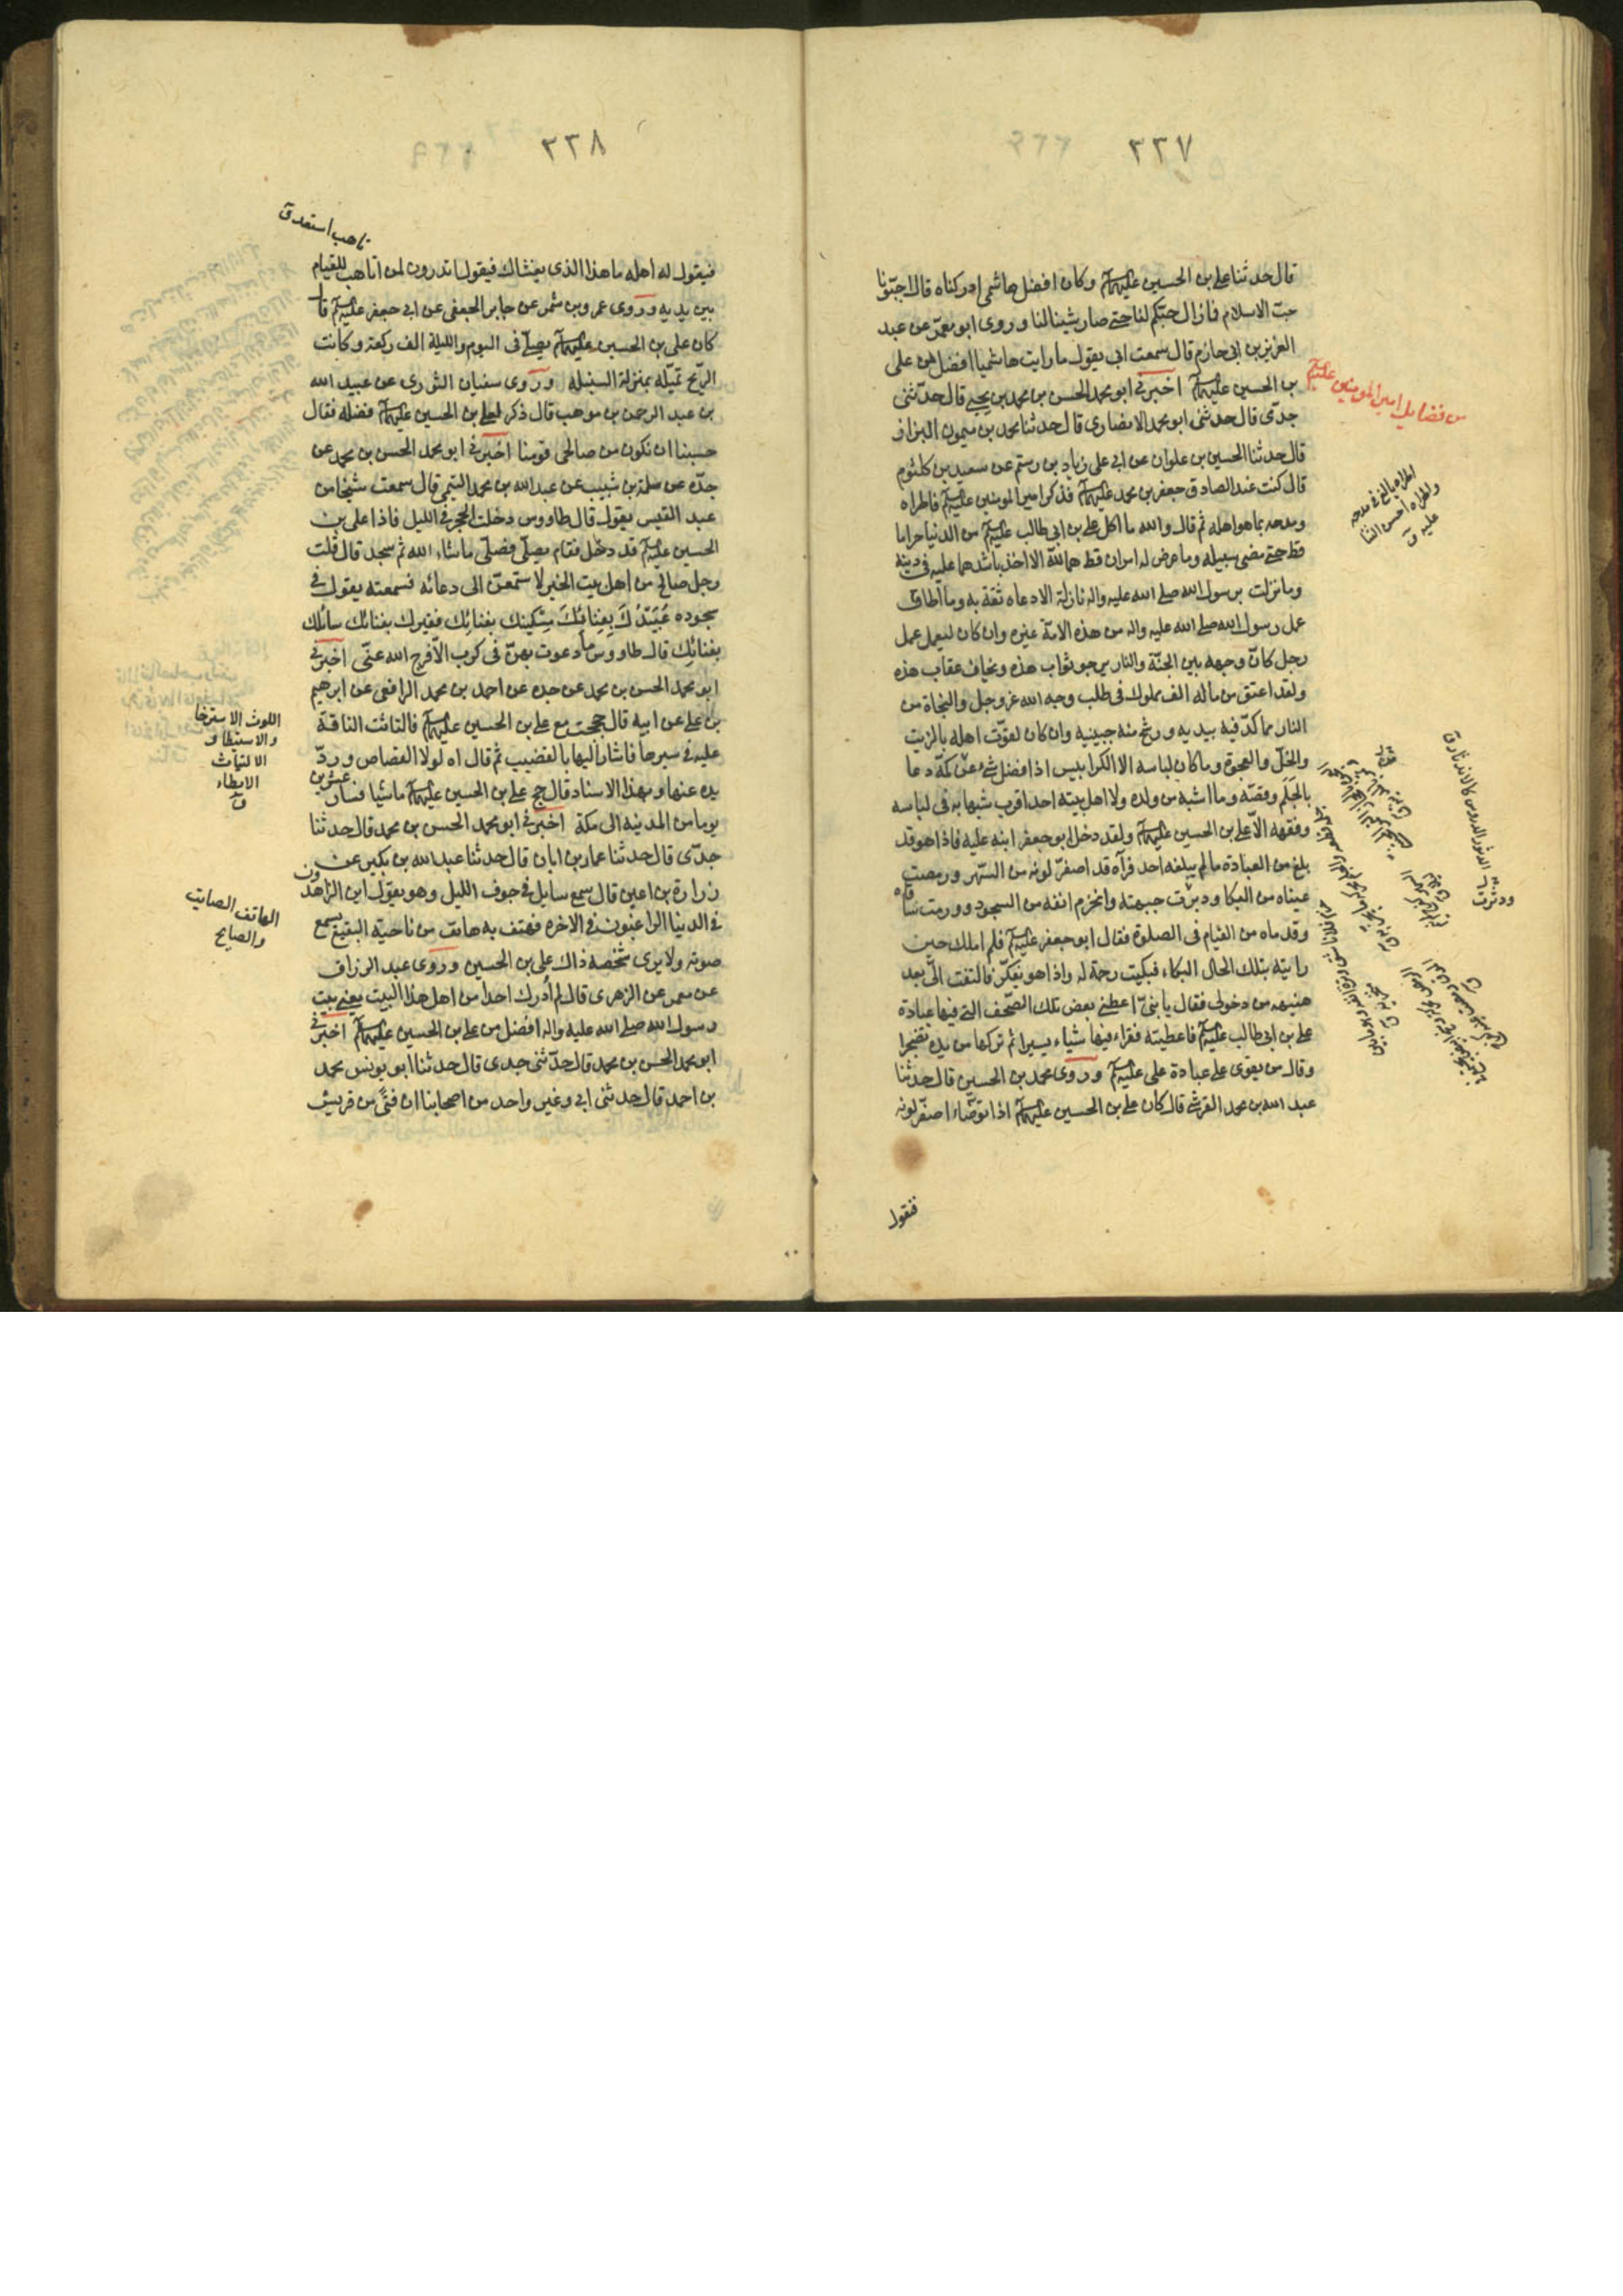 ٣٣٧
قال حدثنا علي بن الحسين عليهما السلم وكان افضل هاشمي ادركناه قال احبّونا
حبّ الاسلام فما زال حبّكم لنا حتى صار شينا لنا وروى ابو معمّر عن عبد
العزيز بن ابي حازم قال سمعت ابي يقول ما رايت هاشميا افضل من علي
بن الحسين عليهما السلم اخبرني ابو محمد الحسن بن محمد بن يحيى قال حدّثني
من فضايل امير المومنين عليه السلم
جدّي قال حدثني ابو محمد الانصاري قال حدثنا محمد بن ميمون البزاز
قال حدثنا الحسين بن علوان عن ابي علي زياد بن رستم عن سعيد بن كلثوم
قال كنت عند الصادق جعفر بن محمد عليهما السلم فذكر امير المومنين عليه السلم فاطراه
ومدحه بما هو اهله ثم قال والله ما اكل علي بن ابي طالب عليه السلم من الدنيا حراما
قط حتى مضى سبيله وما عرض له امران قط هما لله الا اخذ باشدهما عليه في دينه
وما نزلت برسول الله صلى الله عليه واله نازلة الا دعاه ثقة به وما اطاق
عمل رسول الله صلى الله عليه واله من هذه الامّة غيره وان كان ليعمل عمل
رجل كانّ وجهه بين الجنّة والنار يرجو ثواب هذه ويخاف عقاب هذه
ولقد اعتق من ماله الف مملوك في طلب وجه الله عز وجل والنجاة من
النار مما كدّ فيه بيديه ورشح منه جبينه وان كان ليقوّت اهله بالزيت
والخلّ والعجوة وما كان لباسه الا الكرابيس اذا فضل شيء عن كمّه دعا
بالجلم وقصّه وما اشبهه من ولده ولا اهل بيته احد اقرب شبها به في لباسه
وفقهه الّا علي بن الحسين عليهما السلم ولقد دخل ابو جعفر ابنه عليه فاذا هو قد
بلغ من العبادة ما لم يبلغه احد فرآه قد اصفرّ لونه من السّهر ورمصت
عيناه من البكا ودبرت جبهته وانخرم انفه من السجود وورمت ساقاه
وقدماه من القيام في الصلوة فقال ابو جعفر عليه السلم فلم املك حين
رايته بتلك الحال البكاء فبكيت رحمة له واذا هو يفكّر فالتفت اليّ بعد
هنيهه من دخولي فقال يا بنيّ اعطني بعض تلك الصّحف التي فيها عبادة
علي بن ابي طالب عليه السلم فاعطيته فقراء فيها شياء يسيرا ثم تركها من يده تضجرا
وقال من يقوى على عبادة علي عليه السلم وروى محمد بن الحسين قال حدثنا
عبد الله بن محمد القرشي قال كان علي بن الحسين عليهما السلم اذا توضّاء اصفرّ لونه
فيقول
٣٣٨
تاهب استعد ق
فيقول له اهله ما هذا الذي يغشاك فيقول اتدرون لمن اتاهب للقيام
بين يديه وروى عمرو بن شمر عن جابر الجعفي عن ابي جعفر عليه السلم قال
كان علي بن الحسين عليهما السلم يصلّي في اليوم والليلة الف ركعة وكانت
الرّيح تميّله بمنزلة السنبلة وروى سفيان الثوري عن عبيد الله
بن عبد الرحمن بن موهب قال ذكر لعلي بن الحسين عليهما السلم فضله فقال
حسبنا ان نكون من صالحي قومنا اخبرني ابو محمد الحسن بن محمد عن
جدّه عن سلمة بن شبيب عن عبد الله بن محمد التيمي قال سمعت شيخا من
عبد القيس يقول قال طاووس دخلت الحجر في الليل فاذا علي بن
الحسين عليه السلم قد دخل فقام يصلّي فصلّى ما شاء الله ثم سجد قال قلت
رجل صالح من اهل بيت الخير لاستمعنّ الى دعائه فسمعته يقول في
سجوده عُبَيْدُكَ بِفِنائِكَ مِسْكينك بفنائِك فقيرك بفنائك سائلك
بفنائِك قال طاووس فما دعوت بهنّ في كرب الّا فرج الله عنّي اخبرني
ابو محمد الحسن بن محمد عن جده عن احمد بن محمد الرافعي عن ابرهيم
بن علي عن ابيه قال حججت مع علي بن الحسين عليهما السلم فالتاثت الناقة
عليه في سيرها فاشار اليها بالقضيب ثم قال اه لولا القصاص وردّ
يده عنها وبهذا الاسناد قال حج علي بن الحسين عليهما السلم ماشيا فسار عشرين
اللوث الاسترخا
والاستبطا و
الالتياث
الابطاء
يوما من المدينه الى مكة اخبرني ابو محمد الحسن بن محمد قال حدثنا
جدّي قال حدثنا عمار بن ابان قال حدثنا عبد الله بن بكير عن
زرارة بن اعين قال سمع سايل في جوف الليل وهو يقول اين الزاهدون
في الدنيا الراغبون في الاخره فهتف به هاتف من ناحية البقيع يسمع
الهاتف الصايت
والصايح
صوته ولا يرى شخصه ذاك علي بن الحسين وروى عبد الرزاق
عن معمر عن الزهري قال لم اُدرك احدا من اهل هذا البيت يعني بيت
رسول الله صلى الله عليه واله افضل من علي بن الحسين عليهما السلم اخبرني
ابو محمد الحسن بن محمد قال حدّثني جدي قال حدثنا ابو يونس محمد
بن احمد قال حدثني ابي وغير واحد من اصحابنا ان فتًى من قريش